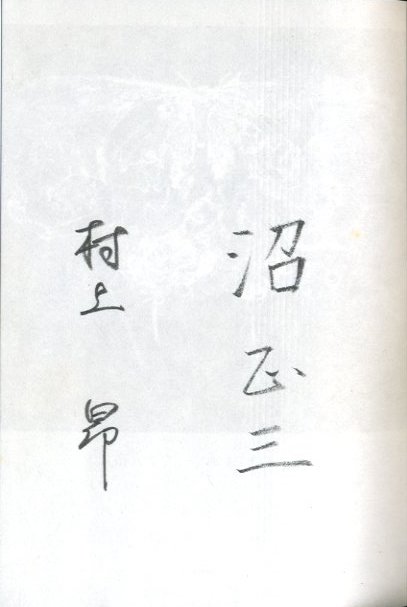 沼正三
村上昂